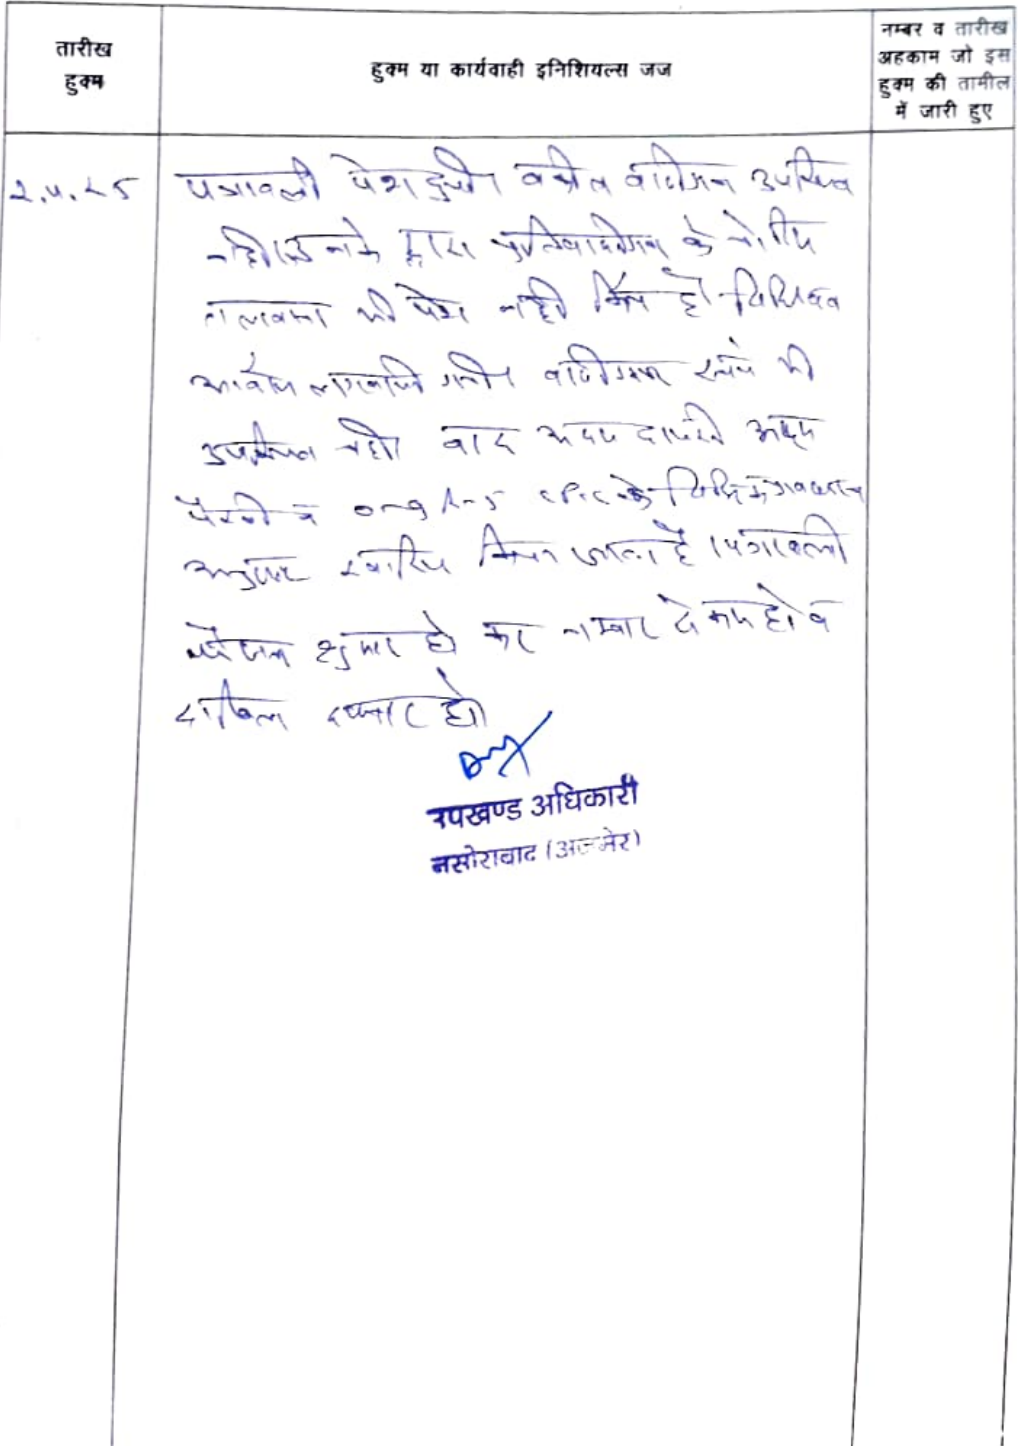 तारीख
हुक्म
हुक्म या कार्यवाही इनिशियल्स जज
नम्बर व तारीख
अहकाम जो इस
हुक्म की तामील
में जारी हुए
पत्रावली पेश हुयी। वकील वादीगण उपस्थित
नहीं। उनके द्वारा प्रतिवादीगण के नोटिस
तलबाना भी पेश नहीं किए है।
वादीगण स्वंय भी
उपस्थित नहीं वाद अदम
पैरवी व 0-9 R-5 CPC के
खारिज किया जाता है। पत्रावली
फैसल शुमार हो कर नम्बर से कम हो व
दाखिल दफ्तर हो।
उपखण्ड अधिकारी
नसीराबाद (अजमेर)